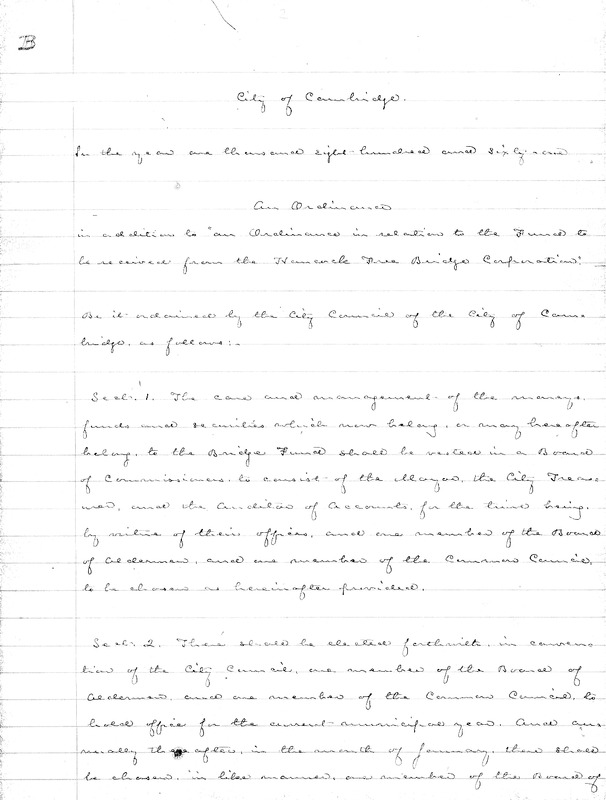 B
City of Cambridge.
In the year one thousand eight hundred and sixty-one
An Ordinance
in addition to "an Ordinance in relation to the Fund to
be received from the Hancock Free Bridge Corporation".
Be it ordained by the City Council of the City of Cam-
bridge, as follows:-
Sect. 1. The care and management of the moneys,
funds and securities which now belong, or may hereafter
belong, to the Bridge Fund shall be vested in a Board
of Commissioners, to consist of the Mayor, the City Treas-
urer, and the Auditor of Accounts, for the time being,
by virtue of their offices, and one member of the Board
of Aldermen, and one member of the Common Council,
to be chosen as hereinafter provided.
Sect. 2. There should be elected forthwith, in conven-
tion of the City Council, one member of the Board of
Aldermen, and one member of the Common Council, to
hold office for the current municipal year. And an-
nually thereafter, in the month of January, there shall
be chosen, in like manner, one member of the Board of